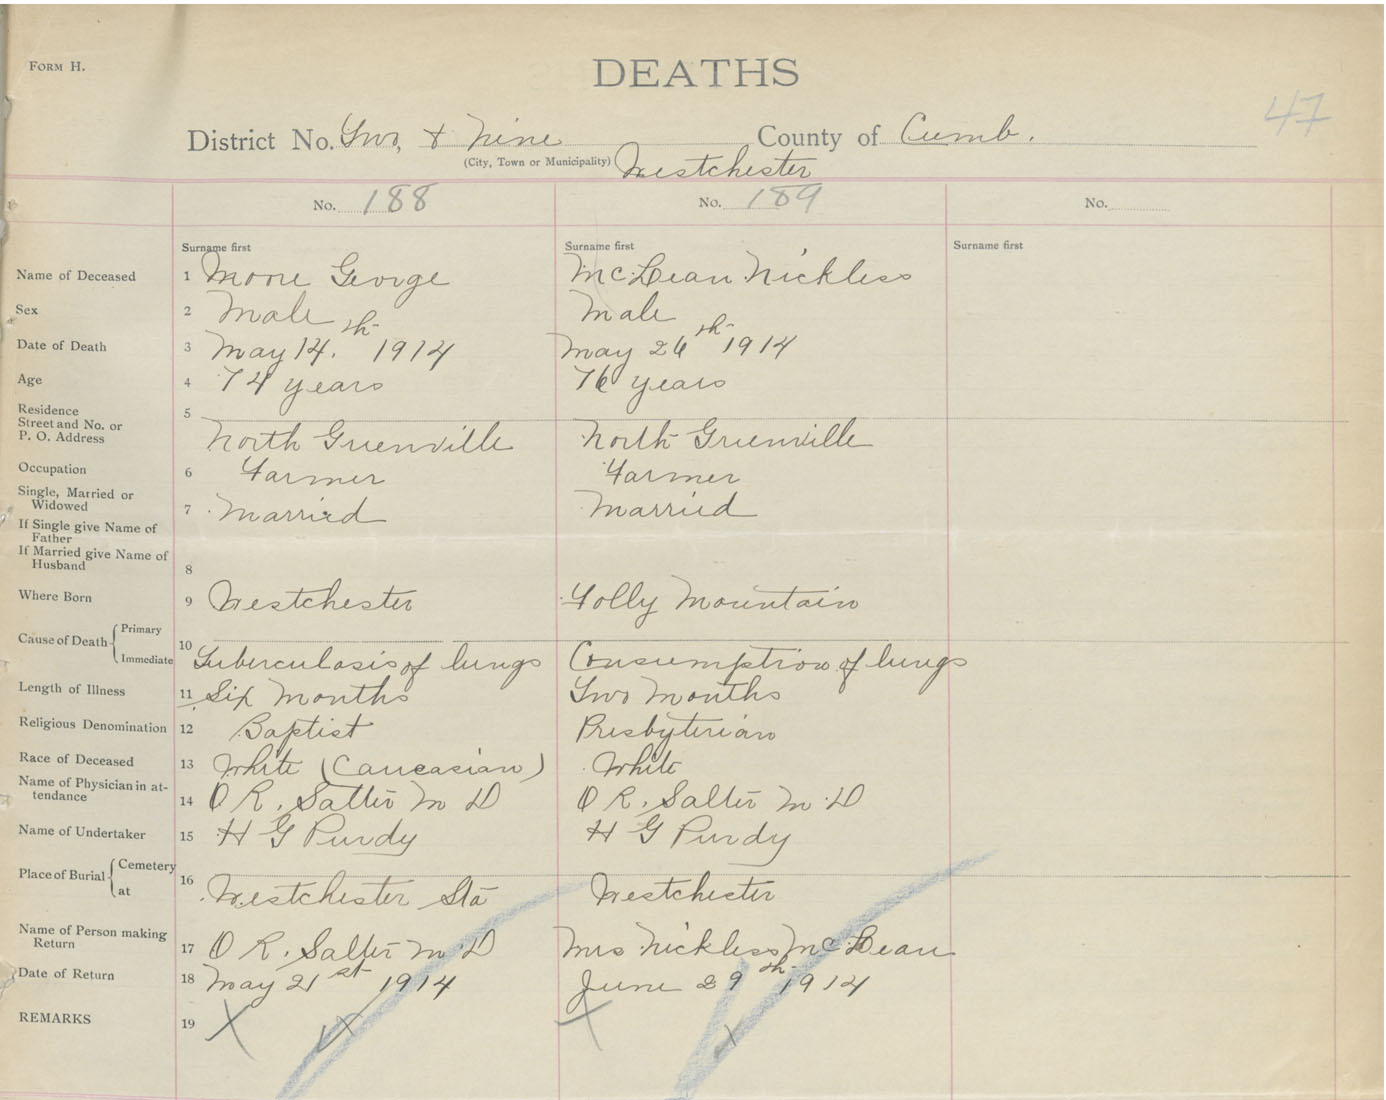 FORM H.
DEATHS
47
District No. Two, & Nine County of Cumb.
(City, Town or Municipality) Westchester
No. 188 No. 189 No.
Surname first Surname first Surname first
Name of Deceased 1 Moore George McLean Nickless
Sex 2 Male Male
Date of Death 3 May 14th 1914 May 26th 1914
Age 4 74 years 76 years
Residence Street and No. or P. O. Address 5 North Greenville North Greenville
Occupation 6 Farmer Farmer
Single, Married or Widowed 7 Married Married
If Single give Name of Father
If Married give Name of Husband 8
Where Born 9 Westchester Folly Mountain
Cause of Death { Primary Immediate 10 Tuberculosis of lungs Consumption of lungs
Length of Illness 11 Six Months Two Months
Religious Denomination 12 Baptist Presbyterian
Race of Deceased 13 White (Caucasian) White
Name of Physician in attendance 14 O R. Salter M D O R. Salter M D
Name of Undertaker 15 H G Purdy H G Purdy
Place of Burial { Cemetery at 16 Westchester Sta Westchester
Name of Person making Return 17 O R. Salter M D Mrs Nickless McLean
Date of Return 18 May 21st 1914 June 29th 1914
REMARKS 19 X X X X